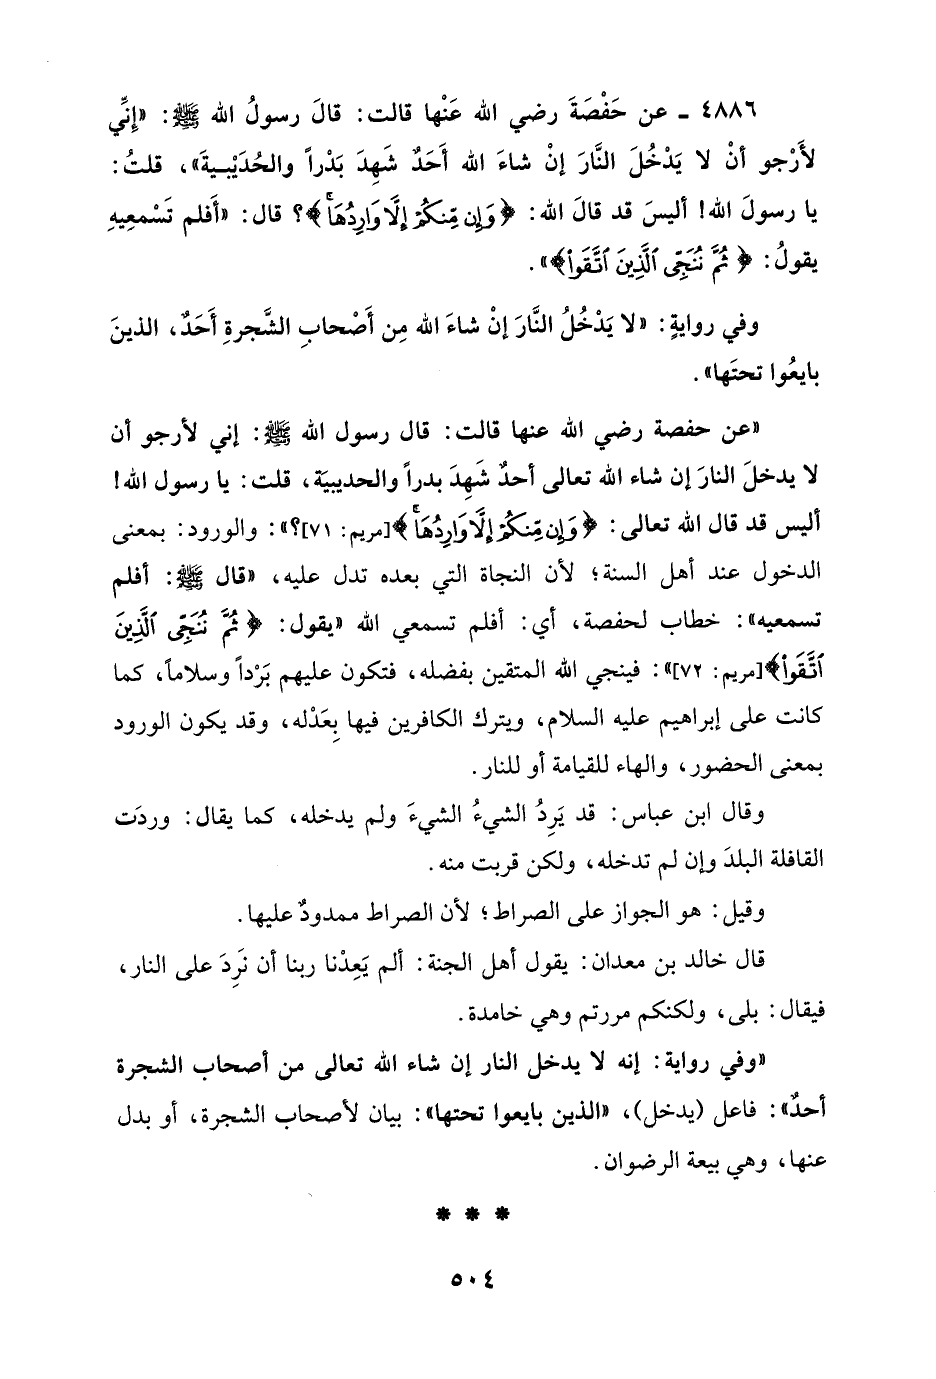 ٤٨٨٦ ـ عن حَفْصَةَ رضي الله عَنْها قالت: قالَ رسولُ الله ﷺ: «إنِّي
لأَرْجو أنْ لا يَدْخُلَ النَّارَ إنْ شاءَ الله أَحَدٌ شَهِدَ بَدْراً والحُدَيْبيةَ»، قلتُ:
يا رسولَ الله! أليسَ قد قالَ الله: ﴿وَإِن مِّنكُمْ إِلَّا وَارِدُهَا﴾؟ قال: «أَفلم تَسْمعِيهِ
يقولُ: ﴿ثُمَّ نُنَجِّى ٱلَّذِينَ ٱتَّقَوا۟﴾».
وفي روايةٍ: «لا يَدْخُلُ النَّارَ إنْ شاءَ الله مِن أَصْحابِ الشَّجرةِ أَحَدٌ، الذينَ
بايعُوا تحتَها».
«عن حفصة رضي الله عنها قالت: قال رسول الله ﷺ: إني لأرجو أن
لا يدخلَ النارَ إن شاء الله تعالى أحدٌ شَهِدَ بدراً والحديبيَة، قلت: يا رسول الله!
أليس قد قال الله تعالى: ﴿وَإِن مِّنكُمْ إِلَّا وَارِدُهَا﴾[مريم: ٧١]؟»: والورود: بمعنى
الدخول عند أهل السنة؛ لأن النجاة التي بعده تدل عليه، «قال ﷺ: أفلم
تسمعيه»: خطاب لحفصة، أي: أفلم تسمعي الله «يقول: ﴿ثُمَّ نُنَجِّى ٱلَّذِينَ
ٱتَّقَوا۟﴾[مريم: ٧٢]»: فينجي الله المتقين بفضله، فتكون عليهم بَرْداً وسلاماً، كما
كانت على إبراهيم عليه السلام، ويترك الكافرين فيها بِعَدْله، وقد يكون الورود
بمعنى الحضور، والهاء للقيامة أو للنار.
وقال ابن عباس: قد يَرِدُ الشيءُ الشيءَ ولم يدخله، كما يقال: وردَت
القافلة البلدَ وإن لم تدخله، ولكن قربت منه.
وقيل: هو الجواز على الصراط؛ لأن الصراط ممدودٌ عليها.
قال خالد بن معدان: يقول أهل الجنة: ألم يَعِدْنا ربنا أن نَرِدَ على النار،
فيقال: بلى، ولكنكم مررتم وهي خامدة.
«وفي رواية: إنه لا يدخل النار إن شاء الله تعالى من أصحاب الشجرة
أحدٌ»: فاعل (يدخل)، «الذين بايعوا تحتها»: بيان لأصحاب الشجرة، أو بدل
عنها، وهي بيعة الرضوان.
* * *
٥٠٤